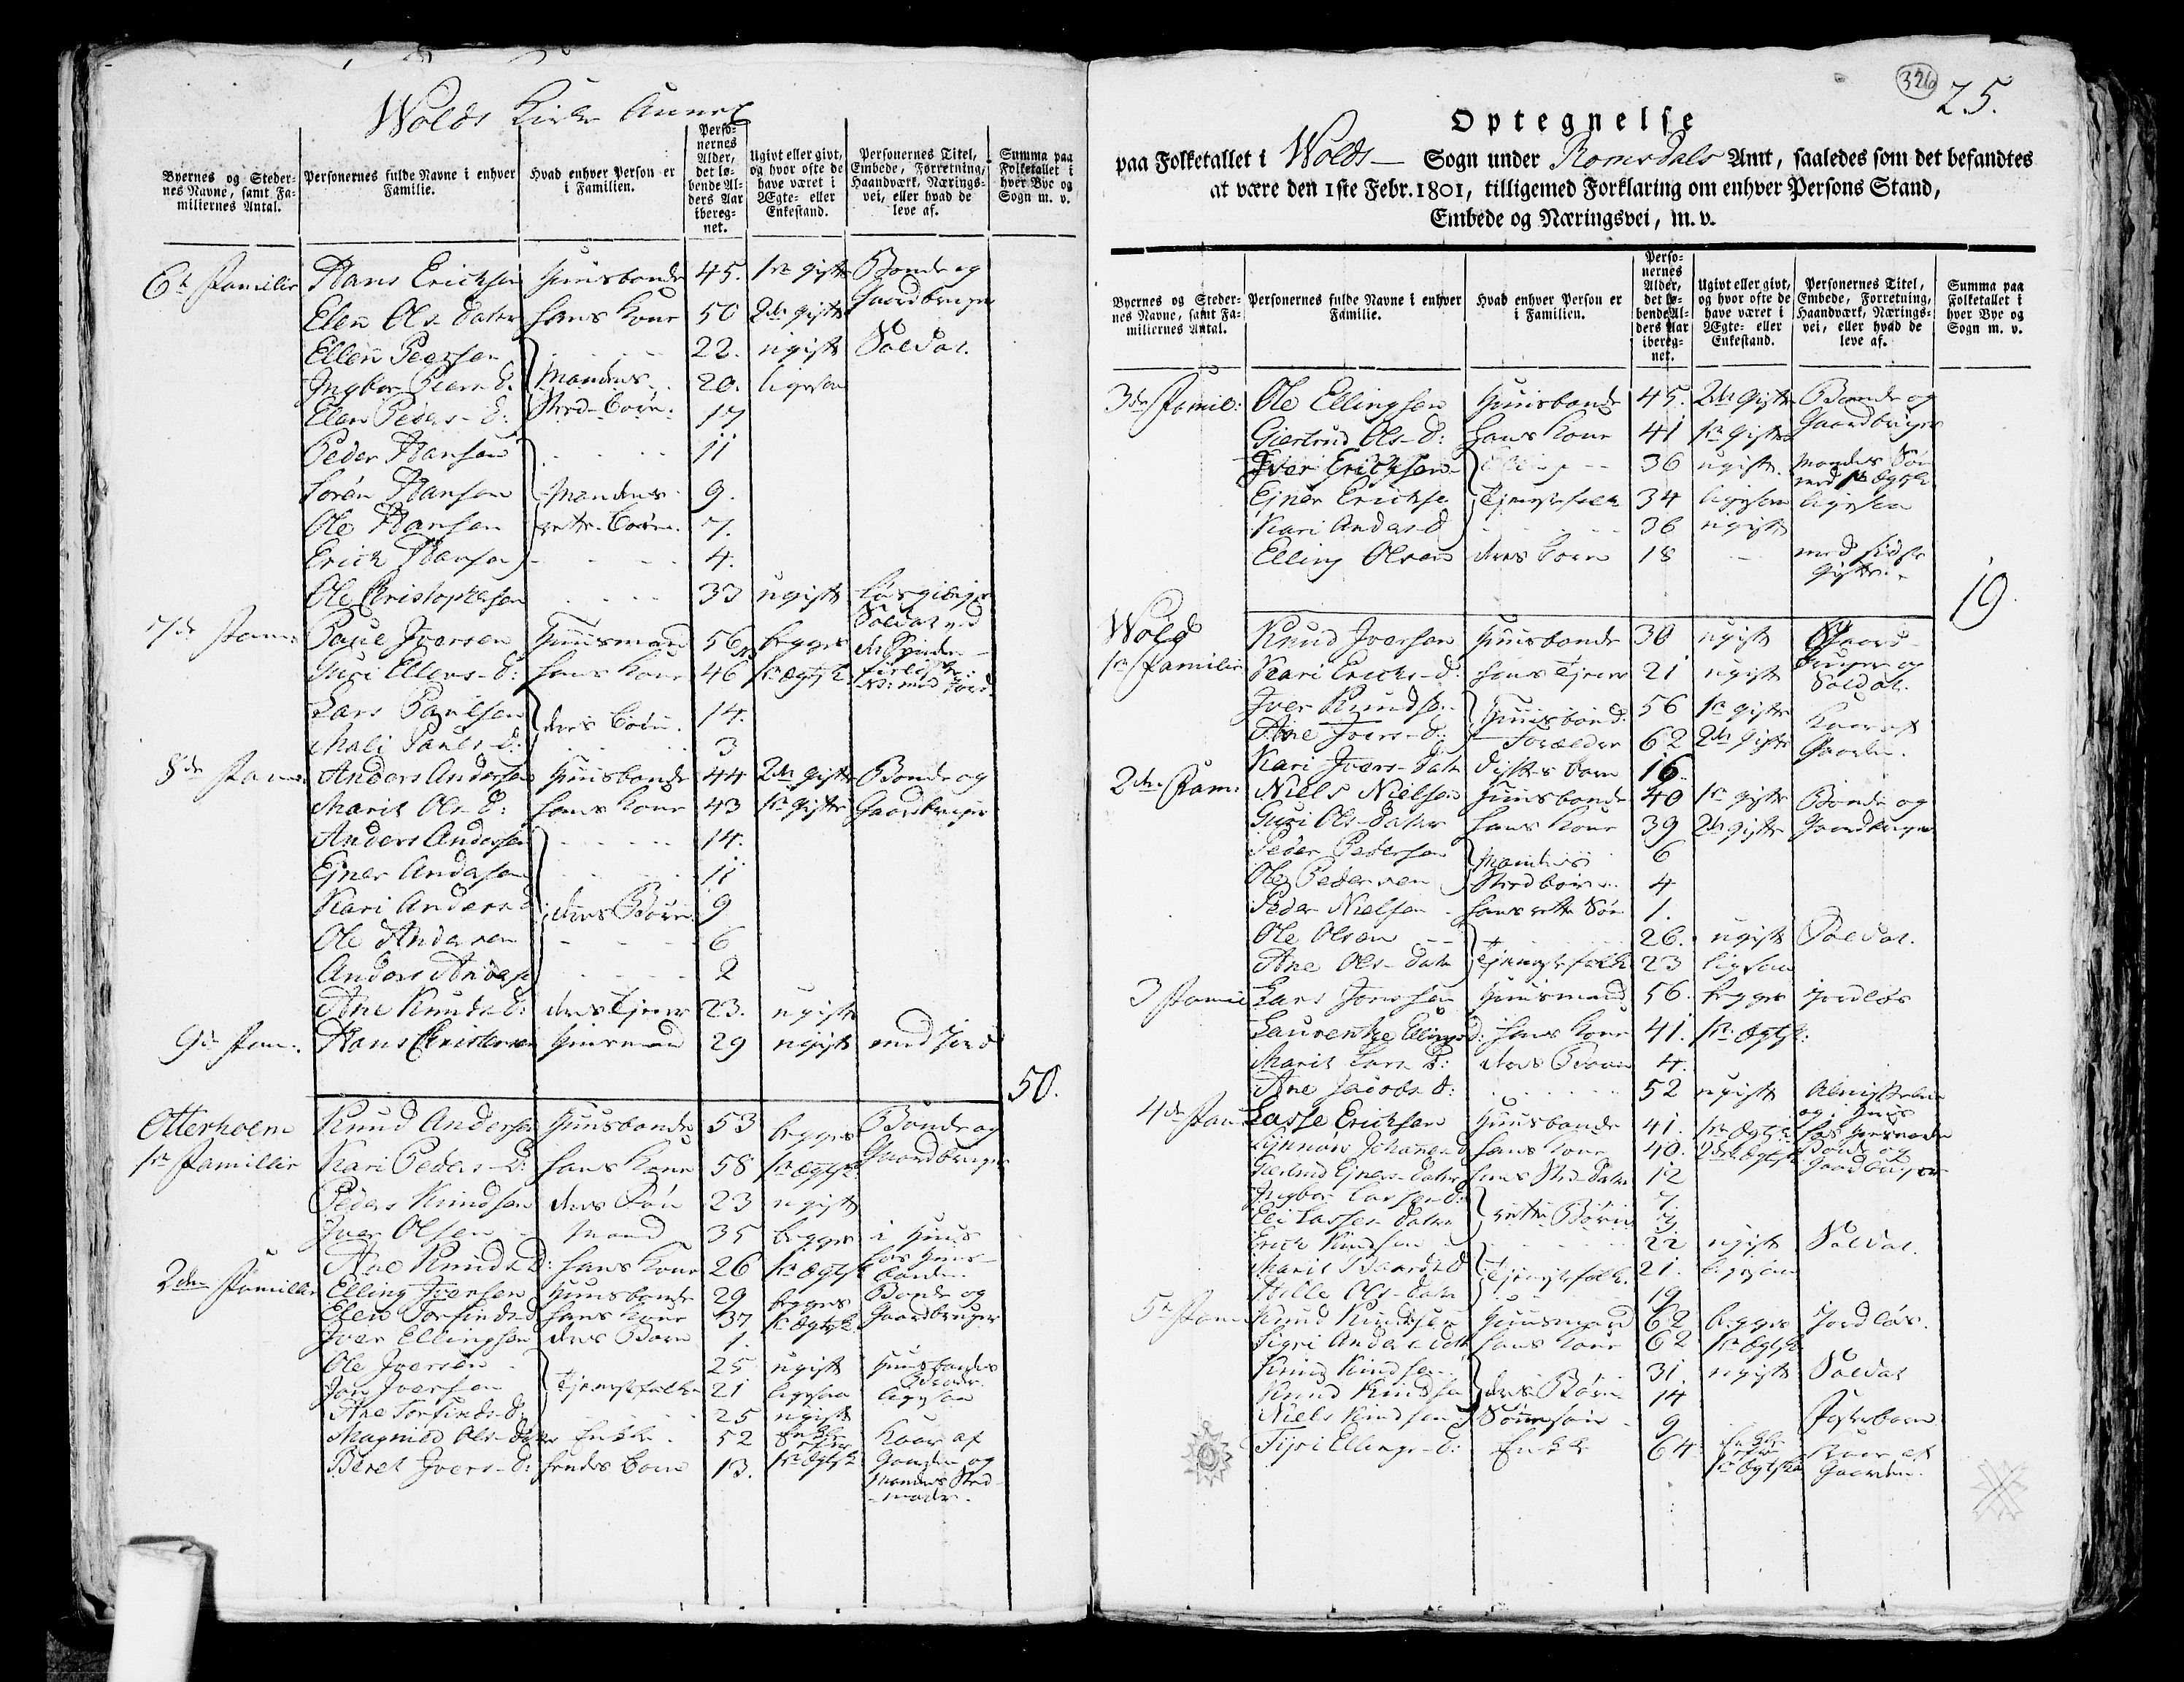 Wolds Kirke Annex
Byernes og Steder-
nes Navne, samt Fa-
miliernes Antal.
Personernes fulde Navne i enhver
Familie.
Hvad enhver Person er
i Familien.
Perso-
nernes
Alder,
det lø-
bende Al-
ders Aar
ibereg-
net.
Ugivt eller givt,
og hvor ofte de
have været i
Ægte- eller
Enkestand.
Personernes Titel,
Embede, Forretning,
Haandværk, Nærings-
vei, eller hvad de
leve af.
Summa paa
Folketallet i
hver Bye og
Sogn m. v.
6te Familie Hans Erichsen Huusbonde 45. 1ste gift Bonde og
Elen Ols-Dater hans Kone 50 2den gift Gaardbruger
Ellen Peersen 22. ugift Soldat.
Ingbor Peers-D. Mandens 20. ligesaa
Elen Peders-D: Sted-børn. 17
Peder Hansen 11
Søren Hansen Mandens 9.
Ole Hansen ægte-børn. 7.
Erich Hansen 4.
Ole Christophersen 33 ugift
Soldat ved
7de Fam: Poul Iversen Huusmand 56 begge
Guri Ellens-D: hans Kone 46 1ste Ægtsk.
Lars Paulsen deres børn. 14.
Mali Pauls-D: 3
8de Fam: Anders Andersen Huusbonde 44 2den gift Bonde og
Marit Ols-D: hans Kone 43 1ste gift Gaardbruger
Anders Andersen 14.
Ejner Andersen 11
Kari Anders-D deres Børn 9
Ole Andersen 6
Anders Anders 2
Ane Knuds-D: deres Tjener 23. ugift
9de Fam: Hans Christensen Huusmand 29 ugift med Jord
50.
Otterholm Knud Andersen Huusbonde 53 begge Bonde og
1ste Familie Kari Peders-D: hans Kone 58 1ste Ægtsk. Gaardbruger
Peder Knudsen deres Søn 23 ugift
Iver Olsen Mand 35 begge i Huus
Ane Knuds-D: hans Kone 26 1ste Ægtsk hos Huus-
bonden
2den Familie Elling Iversen Huusbonde 29 begge Bonde og
Elen Torfinds-D hans Kone 37 1ste Ægtsk Gaardbruger
Iver Ellingsen deres Barn 1.
Ole Iversen 25 ugift Huusbondes
Brødre.
Jon Iversen Tjenestefolk 21 ligesaa ligesaa
Ane Torfinds-D: 25 ugift
Magnild Ols-Dater Enke. 52 Enke efter Kaar af
Beret Ivers-D: hendes barn 13. 1ste Ægtsk Gaarden og
Mandens Sted-
moder.
326
25.
Optegnelse
paa Folketallet i Wolds Sogn under Romsdals Amt, saaledes som det befandtes
at være den 1ste Febr. 1801, tilligemed Forklaring om enhver Persons Stand,
Embede og Næringsvei, m. v.
Byernes og Steder-
nes Navne, samt Fa-
miliernes Antal.
Personernes fulde Navne i enhver
Familie.
Hvad enhver Person er
i Familien.
Perso-
nernes
Alder,
det lø-
bende Al-
ders Aar
ibereg-
net.
Ugivt eller givt,
og hvor ofte de
have været i
Ægte- eller
Enkestand.
Personernes Titel,
Embede, Forretning,
Haandværk, Nærings-
vei, eller hvad de
leve af.
Summa paa
Folketallet i
hver Bye og
Sogn m. v.
3de Famil: Ole Ellingsen Huusbonde 45. 2den gift Bonde og
Giertrud Ols-D: hans Kone 41 1ste gift Gaardbruger
Iver Erichsen 36 ugift. Mandens Søn
med 1ste Ægtsk
Ejner Erichse Tjenestefolk 34 ligesaa ligesaa
Kari Anders-D 36 ugift
Elling Olsen deres barn 18 med sidste
gifte.
19
Wold Knud Iversen Huusbonde 30 ugift Gaard-
1ste Familie Kari Erichs-D. hans Tjener 21 ugift bruger og
Soldat.
Iver Knudsen Huusbond: 56 1ste gift Kaar af
Ane Ivers-D: Forældre 62 2den gift Gaarden.
Kari Ivers-Dater barn 16.
2den Fam: Niels Nielsen Huusbonde 40 1ste gift Bonde og
Guri Ols-Dater hans Kone 39 2den gift Gaardbruger
Peder Pedersen Mandens 6
Ole Pedersen Stedbørn 4
Peder Nielsen hans ægte Søn 1.
Ole Olsen 26. ugift Soldat.
Ane Ols-Dater Tjenestefolk 23 ligesaa
3 Famil Lars Jonsen Huusmand 56. begge jordløs
Laurentze Ellings-D: hans Kone 41. 1ste Ægtsk:
Marit Lars-D: deres Barn 4.
Ane Jacobs-D: 52 ugift Almisselem
og i Huus
4de Fam Lasse Erichsen Huusbonde 41. 1ste Ægtsk.
Synnøv Johanne-D hans Kone 40. 2den Ægtsk Bonde og
Giertrud Ejners-Dater hans Sted-Dater 12 Gaardbruger
Ingbor Lasses-D: 7
Eli Lasses-Dater ægte Børn 3
Erich Knudsen 22 ugift Soldat.
Marit Baards-D Tjenestefolk. 21. ligesaa
Mille Ols-Dater 19
5te Fam Knud Knudsen Huusmand 62 begge Jordløs.
Sigri Anders-Datt hans Kone 62 1ste Ægtsk
Knud Knudsen 31. ugift Soldat
Knud Knudsen deres Børn 14
Niels Knudsen Sønnesøn 9 Fosterbarn
Siri Ellings-D: Enke 64 Enke efter Kaar af
1ste Ægteska Gaarden.